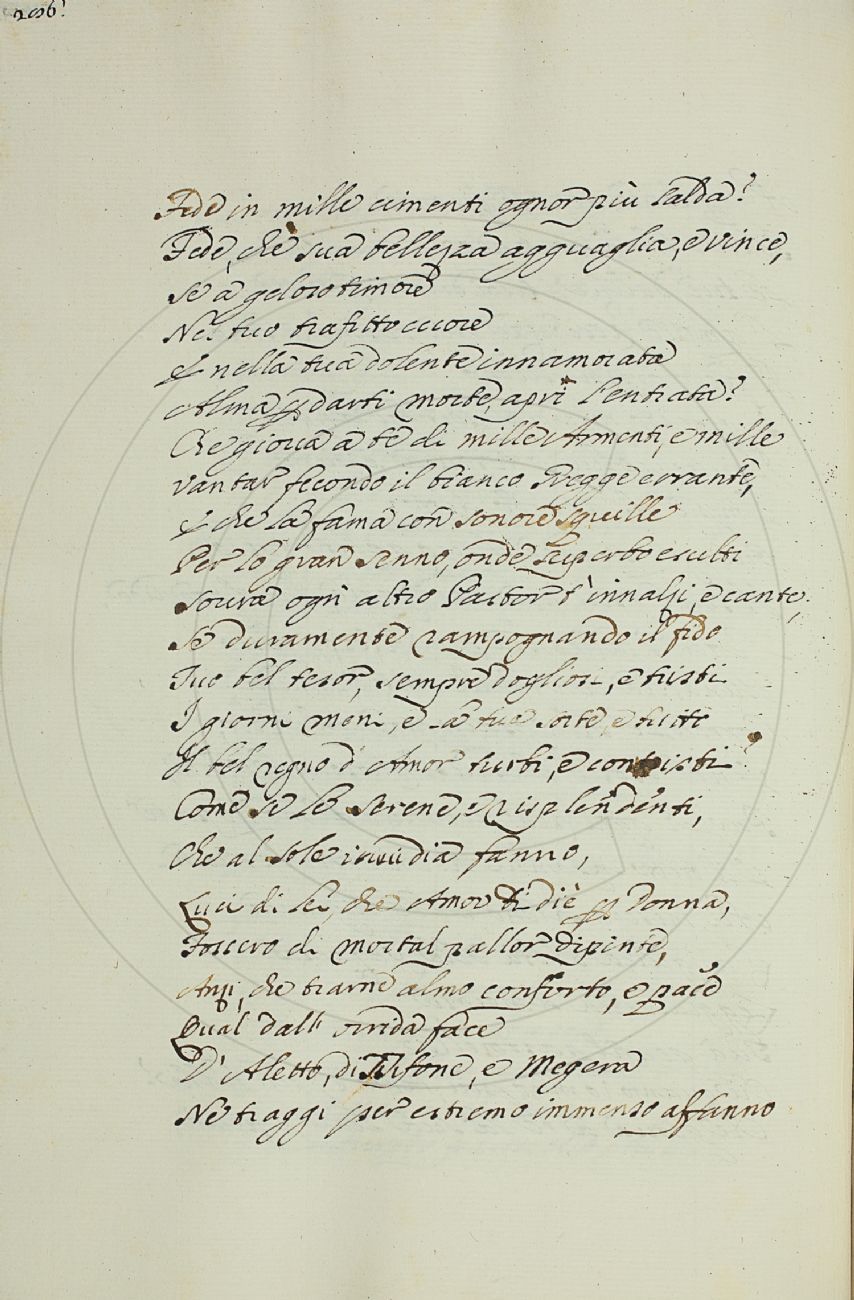 206.
Fede in mille cimenti ognor più salda?
Fede, che sua bellezza agguaglia, e vince,
Se a geloso timore
Nel tuo trafitto cuore
E nella tua dolente innamorata
Alma p darti morte, apri l'entrata?
Che giova a te di mille Armenti, e mille
Vantar fecondo il bianco Gregge errante,
E che la fama con sonore squille
Per lo gran senno, onde superbo esulti
Sovra ogni altro Pastor t'innalzi, e cante,
Se duramente rampognando il fido
Tuo bel tesor, sempre dogliosi, e tristi
I giorni meni, e tue sorte, e
Il bel regno d'Amor turbi, e contristi?
Come se le serene, e risplendenti,
Che al sole invidia fanno,
Luci di lei, che Amor ti diè p Donna,
Fossero di mortal pallor dipinte,
Anzi, che trarne almo conforto, e pace
Qual dall' orrida face
D'Aletto, di Tisifone, e Megera
Ne traggi per estremo immenso affanno